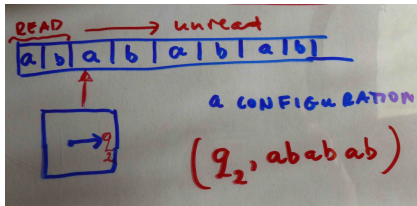 READ → unread
a b a b a b a b
a CONFIGURATION
q2
(q2, ababab)